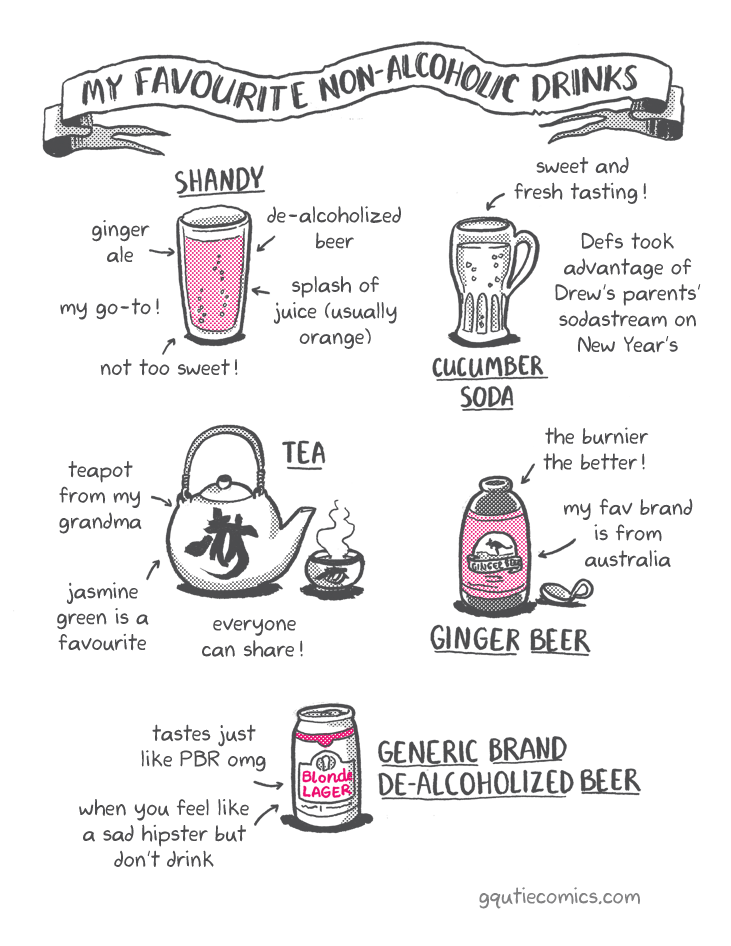 MY FAVOURITE NON-ALCOHOLIC DRINKS
SHANDY
ginger
ale
de-alcoholized
beer
my go-to!
splash of
juice (usually
orange)
not too sweet!
sweet and
fresh tasting!
Defs took
advantage of
Drew's parents'
sodastream on
New Year's
CUCUMBER
SODA
TEA
teapot
from my
grandma
jasmine
green is a
favourite
everyone
can share!
the burnier
the better!
my fav brand
is from
australia
GINGER BEER
GINGER BEER
tastes just
like PBR omg
when you feel like
a sad hipster but
don't drink
Blonde
LAGER
GENERIC BRAND
DE-ALCOHOLIZED BEER
gqutiecomics.com